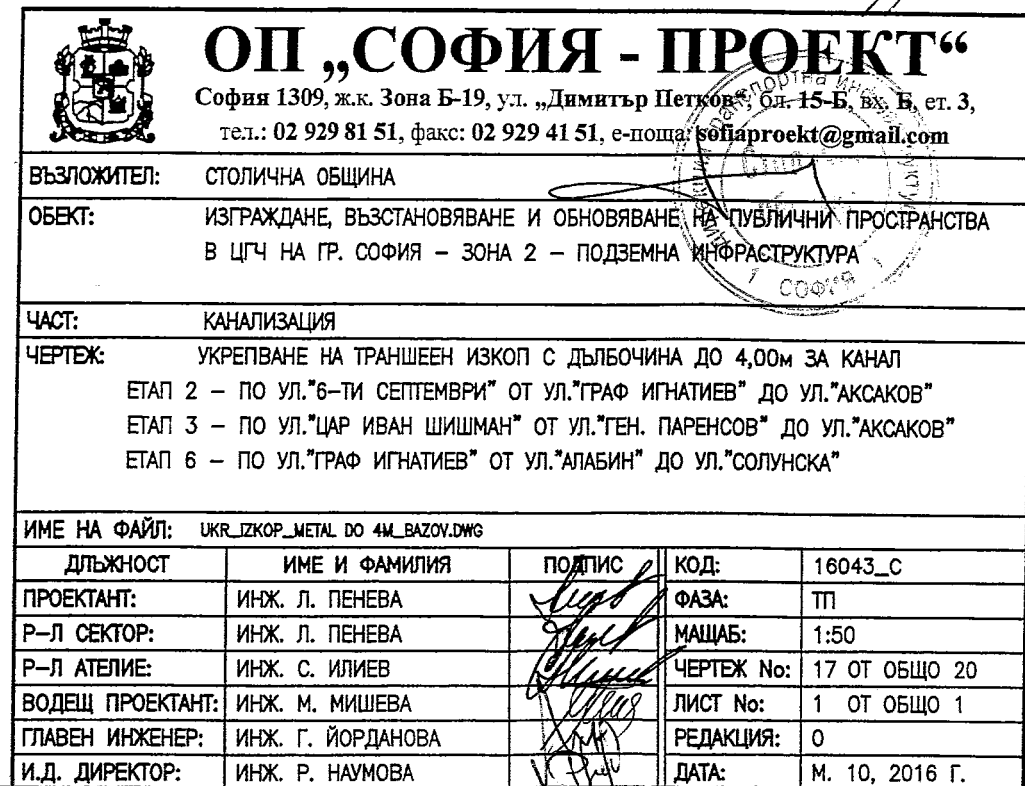 ОП „СОФИЯ - ПРОЕКТ“
София 1309, ж.к. Зона Б-19, ул. „Димитър Петков“, бл. 15-Б, вх. Б, ет. 3,
тел.: 02 929 81 51, факс: 02 929 41 51, е-поща: sofiaproekt@gmail.com
ВЪЗЛОЖИТЕЛ: СТОЛИЧНА ОБЩИНА
ОБЕКТ: ИЗГРАЖДАНЕ, ВЪЗСТАНОВЯВАНЕ И ОБНОВЯВАНЕ НА ПУБЛИЧНИ ПРОСТРАНСТВА
В ЦГЧ НА ГР. СОФИЯ – ЗОНА 2 – ПОДЗЕМНА ИНФРАСТРУКТУРА
СОФИЯ
ЧАСТ: КАНАЛИЗАЦИЯ
ЧЕРТЕЖ: УКРЕПВАНЕ НА ТРАНШЕЕН ИЗКОП С ДЪЛБОЧИНА ДО 4,00м ЗА КАНАЛ
ЕТАП 2 – ПО УЛ."6-ТИ СЕПТЕМВРИ" ОТ УЛ."ГРАФ ИГНАТИЕВ" ДО УЛ."АКСАКОВ"
ЕТАП 3 – ПО УЛ."ЦАР ИВАН ШИШМАН" ОТ УЛ."ГЕН. ПАРЕНСОВ" ДО УЛ."АКСАКОВ"
ЕТАП 6 – ПО УЛ."ГРАФ ИГНАТИЕВ" ОТ УЛ."АЛАБИН" ДО УЛ."СОЛУНСКА"
ИМЕ НА ФАЙЛ: UKR_IZKOP_METAL DO 4M_BAZOV.DWG
ДЛЪЖНОСТ ИМЕ И ФАМИЛИЯ ПОДПИС КОД: 16043_C
ПРОЕКТАНТ: ИНЖ. Л. ПЕНЕВА ФАЗА: ТП
Р–Л СЕКТОР: ИНЖ. Л. ПЕНЕВА МАЩАБ: 1:50
Р–Л АТЕЛИЕ: ИНЖ. С. ИЛИЕВ ЧЕРТЕЖ No: 17 ОТ ОБЩО 20
ВОДЕЩ ПРОЕКТАНТ: ИНЖ. М. МИШЕВА ЛИСТ No: 1 ОТ ОБЩО 1
ГЛАВЕН ИНЖЕНЕР: ИНЖ. Г. ЙОРДАНОВА РЕДАКЦИЯ: 0
И.Д. ДИРЕКТОР: ИНЖ. Р. НАУМОВА ДАТА: М. 10, 2016 Г.